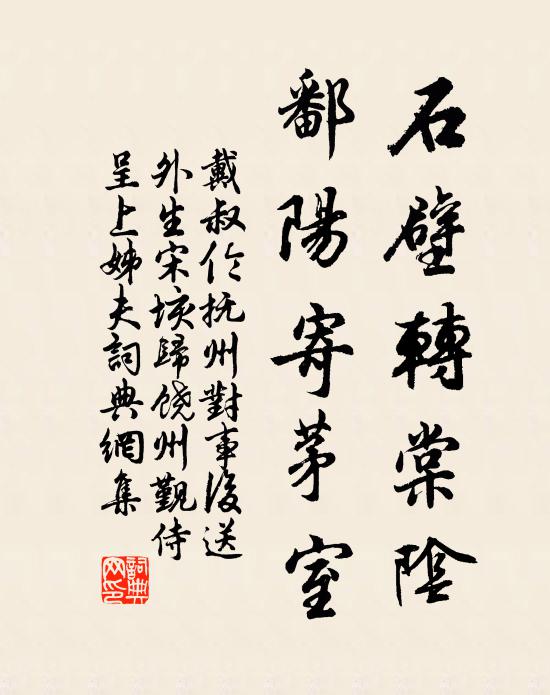 石壁轉棠陰
鄱陽寄茅室
戴叔伦抚州對事後送
外生宋垓歸饶州覲侍
呈上姊夫詞典網集
詞典网印